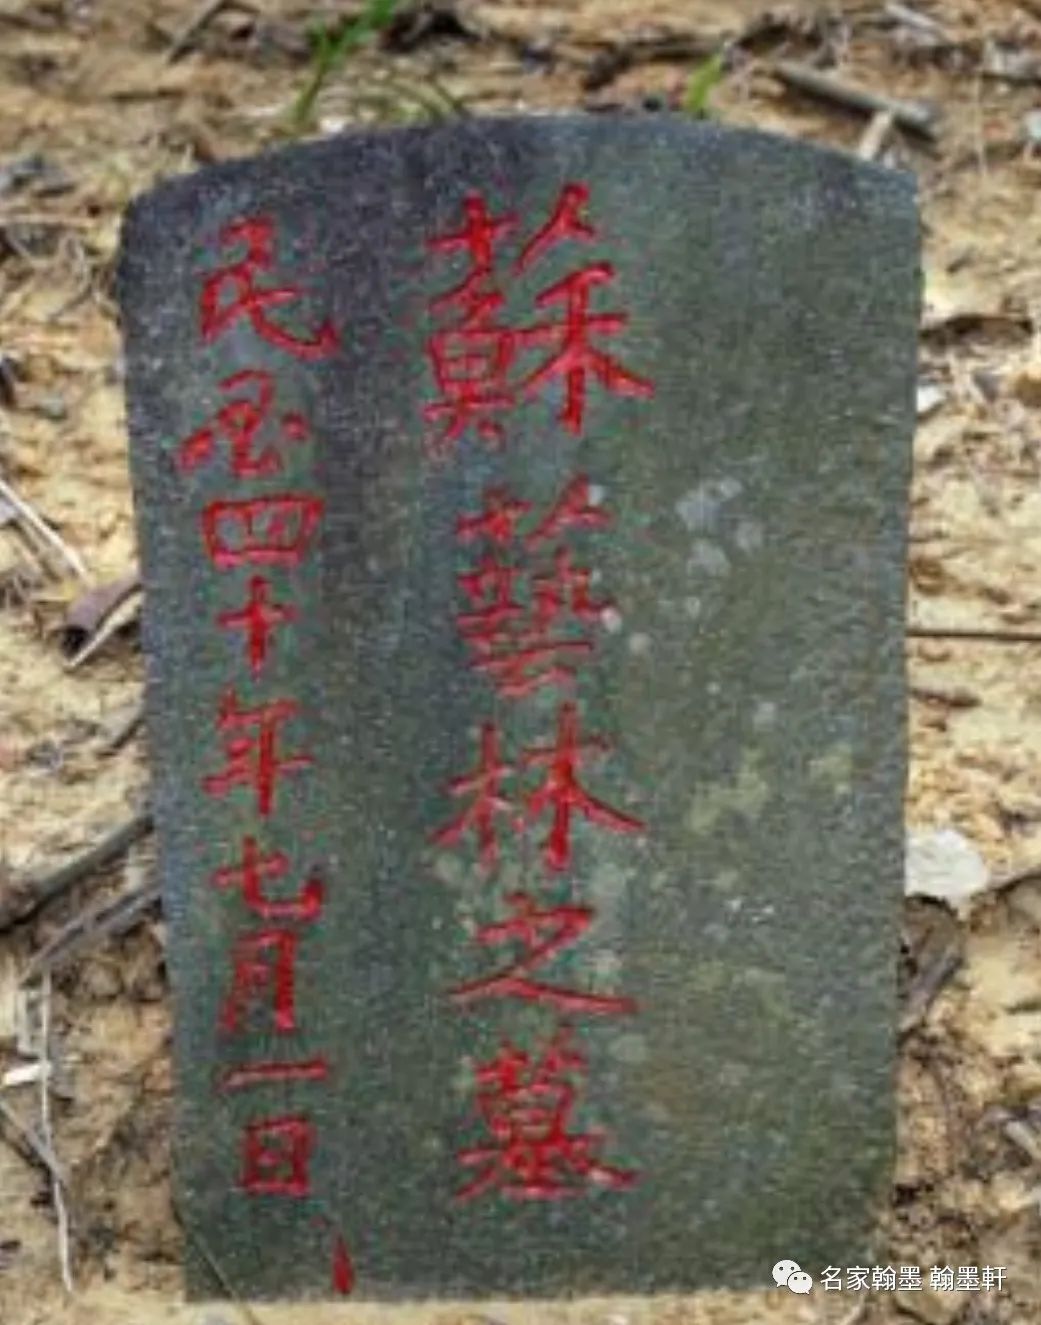 蘇藝林之墓
民国四十年七月一日
名家翰墨 翰墨軒